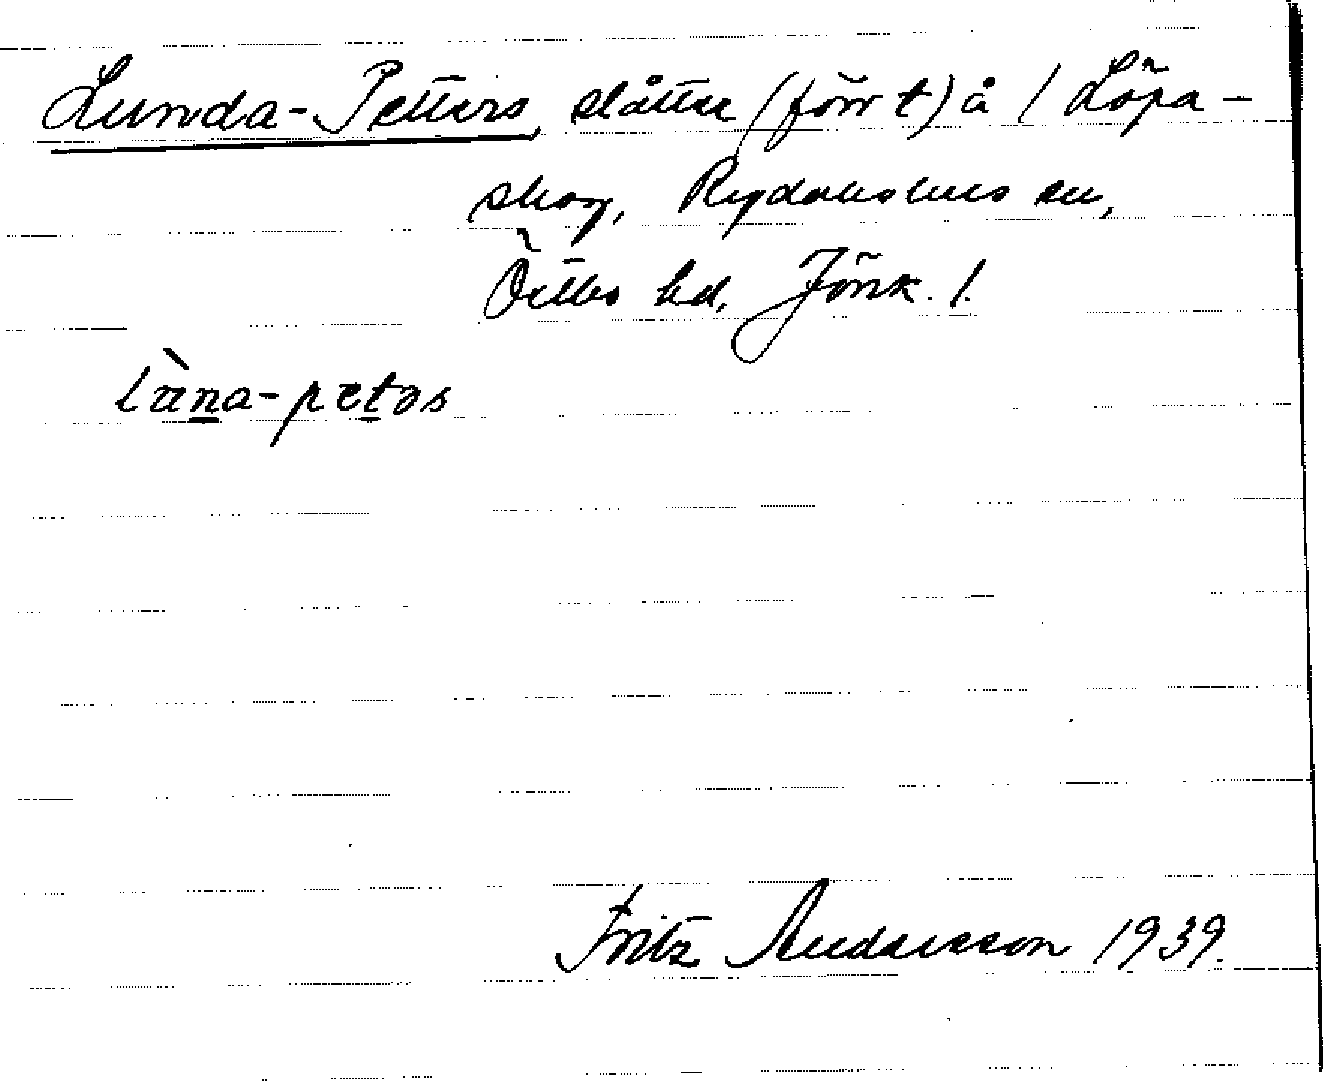 Lunda-Petters, slåtter (förr t) å / Löpa-
skog, Rydaholms sn,
Östbo hd. Jönk. l.
Fritz Andersson 1939.